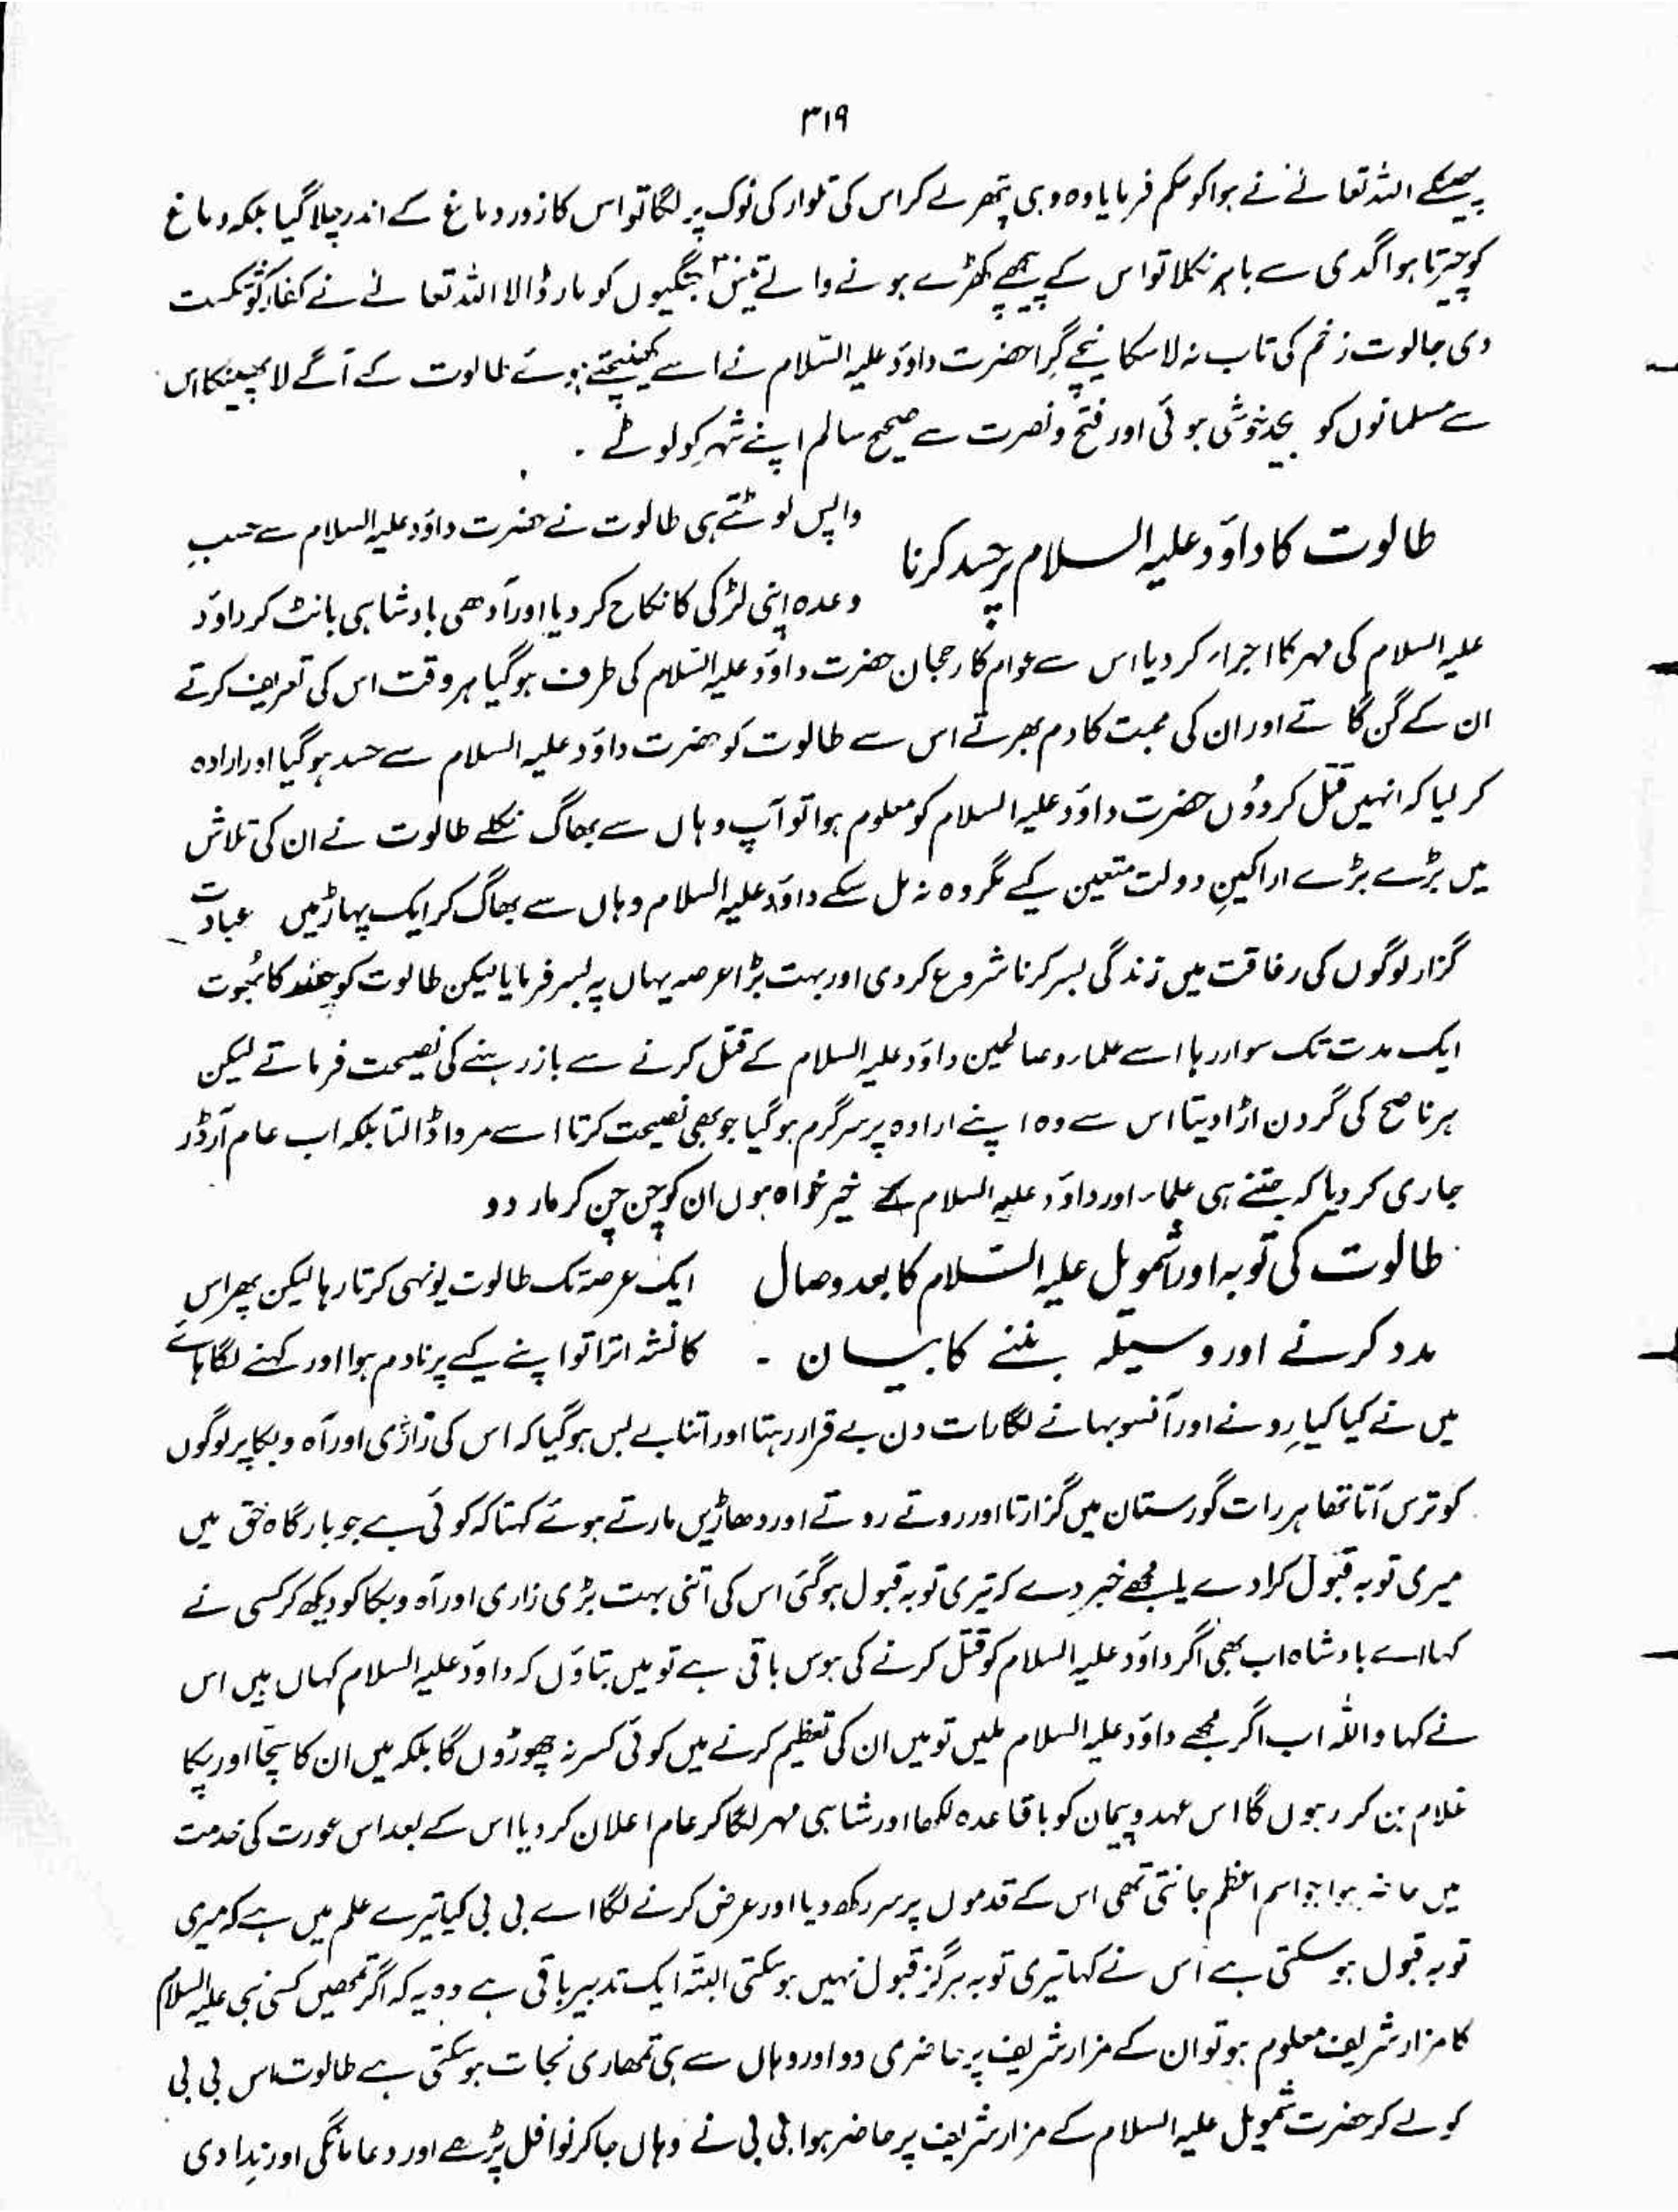 ۳۱۹
پھینکے اللہ تعالےٰ نے ہوا کو حکم فرمایا وہ وہی پتھر لے کر اس کی تلوار کی نوک پر لگا تو اس کا زور دماغ کے اندر چلا گیا بلکہ دماغ
کو چیرتا ہوا گدی سے باہر نکلا تو اس کے پیچھے کھڑے ہونے والے تیس۳۰ جنگیوں کو مار ڈالا اللہ تعالےٰ نے کفار کو شکست
دی جالوت زخم کی تاب نہ لا سکا نیچے گرا حضرت داؤد علیہ السّلام نے اسے کھینچتے ہوئے طالوت کے آگے لا پھینکا اس
سے مسلمانوں کو بیحد خوشی ہوئی اور فتح و نصرت سے صحیح سالم اپنے شہر کو لوٹے ۔
طالوت کا داؤد علیہ السلام پر حسد کرنا واپس لوٹتے ہی طالوت نے حضرت داؤد علیہ السلام سے حسبِ
وعدہ اپنی لڑکی کا نکاح کر دیا اور آدھی بادشاہی بانٹ کر داؤد
علیہ السلام کی مہر کا اجراء کر دیا اس سے عوام کا رجحان حضرت داؤد علیہ السّلام کی طرف ہو گیا ہر وقت اس کی تعریف کرتے
ان کے گن گاتے اور ان کی محبت کا دم بھرتے اس سے طالوت کو حضرت داؤد علیہ السلام سے حسد ہو گیا اور ارادہ
کر لیا کہ انہیں قتل کر دوُں حضرت داؤد علیہ السلام کو معلوم ہوا تو آپ وہاں سے بھاگ نکلے طالوت نے ان کی تلاش
میں بڑے بڑے اراکینِ دولت متعین کیے مگر وہ نہ مل سکے داؤد علیہ السلام وہاں سے بھاگ کر ایک پہاڑ میں عبادت
گزار لوگوں کی رفاقت میں زندگی بسر کرنا شروع کر دی اور بہت بڑا عرصہ یہاں پہ بسر فرمایا لیکن طالوت کو حسد کا بھُوت
ایک مدت تک سوار رہا اسے علماء و صالحین داؤد علیہ السلام کے قتل کرنے سے باز رہنے کی نصیحت فرماتے لیکن
ہر ناصح کی گردن اڑا دیتا اس سے وہ اپنے ارادہ پر سرگرم ہو گیا جو بھی نصیحت کرتا اسے مروا ڈالتا بلکہ اب عام آرڈر
جاری کر دیا کہ جتنے ہی علماء اور داؤد علیہ السلام کے خیر خواہ ہوں ان کو چن چن کر مار دو
طالوت کی توبہ اور شمویل علیہ السّلام کا بعد وصال ایک عرصۃ تک طالوت یونہی کرتا رہا لیکن پھر اس
مدد کرنے اور وسیلہ بننے کا بیان ۔ کا نشہ اترا تو اپنے کیے پر نادم ہوا اور کہنے لگا ہائے
میں نے کیا کیا رونے اور آنسو بہانے لگا رات دن بے قرار رہتا اور اتنا بے بس ہو گیا کہ اس کی زاری اور آہ و بکا پر لوگوں
کو ترس آتا تھا ہر رات گورستان میں گزارتا اور روتے روتے اور دھاڑیں مارتے ہوئے کہتا کہ کوئی ہے جو بارگاہ حق میں
میری توبہ قبول کرا دے یا مجھے خبر دے کہ تیری توبہ قبول ہو گئی اس کی اتنی بہت بڑی زاری اور آہ و بکا کو دیکھ کر کسی نے
کہا اے بادشاہ اب بھی اگر داؤد علیہ السلام کو قتل کرنے کی ہوس باقی ہے تو میں بتاؤں کہ داؤد علیہ السلام کہاں ہیں اس
نے کہا واللہ اب اگر مجھے داؤد علیہ السلام ملیں تو میں ان کی تعظیم کرنے میں کوئی کسر نہ چھوڑوں گا بلکہ میں ان کا سچّا اور پکا
غلام بن کر رہوں گا اس عہد و پیمان کو باقاعدہ لکھا اور شاہی مہر لگا کر عام اعلان کر دیا اس کے بعد اس عورت کی خدمت
میں حاضر ہوا جو اسم اعظم جانتی تھی اس کے قدموں پر سر رکھ دیا اور عرض کرنے لگا اے بی بی کیا تیرے علم میں ہے کہ میری
توبہ قبول ہو سکتی ہے اس نے کہا تیری توبہ ہرگز قبول نہیں ہو سکتی البتّہ ایک تدبیر باقی ہے وہ یہ کہ اگر تمھیں کسی نبی علیہ السلام
کا مزار شریف معلوم ہو تو ان کے مزار شریف پر حاضری دو اور وہاں سے ہی تمھاری نجات ہو سکتی ہے طالوت اس بی بی
کو لے کر حضرت شمویل علیہ السلام کے مزار شریف پر حاضر ہوا بی بی نے وہاں جا کر نوافل پڑھے اور دعا مانگی اور ندا دی